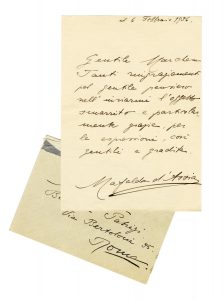 6 Febbraio 1936
Gentile Marchesa
Tanti ringraziamenti
pel gentile pensiero
nell'inviarmi l'oggetto
smarrito e particolar
mente grazie per
le espressioni così
gentili e gradite.
Mafalda d'Assia
Patrizi
Via Bertoloni 35
Roma